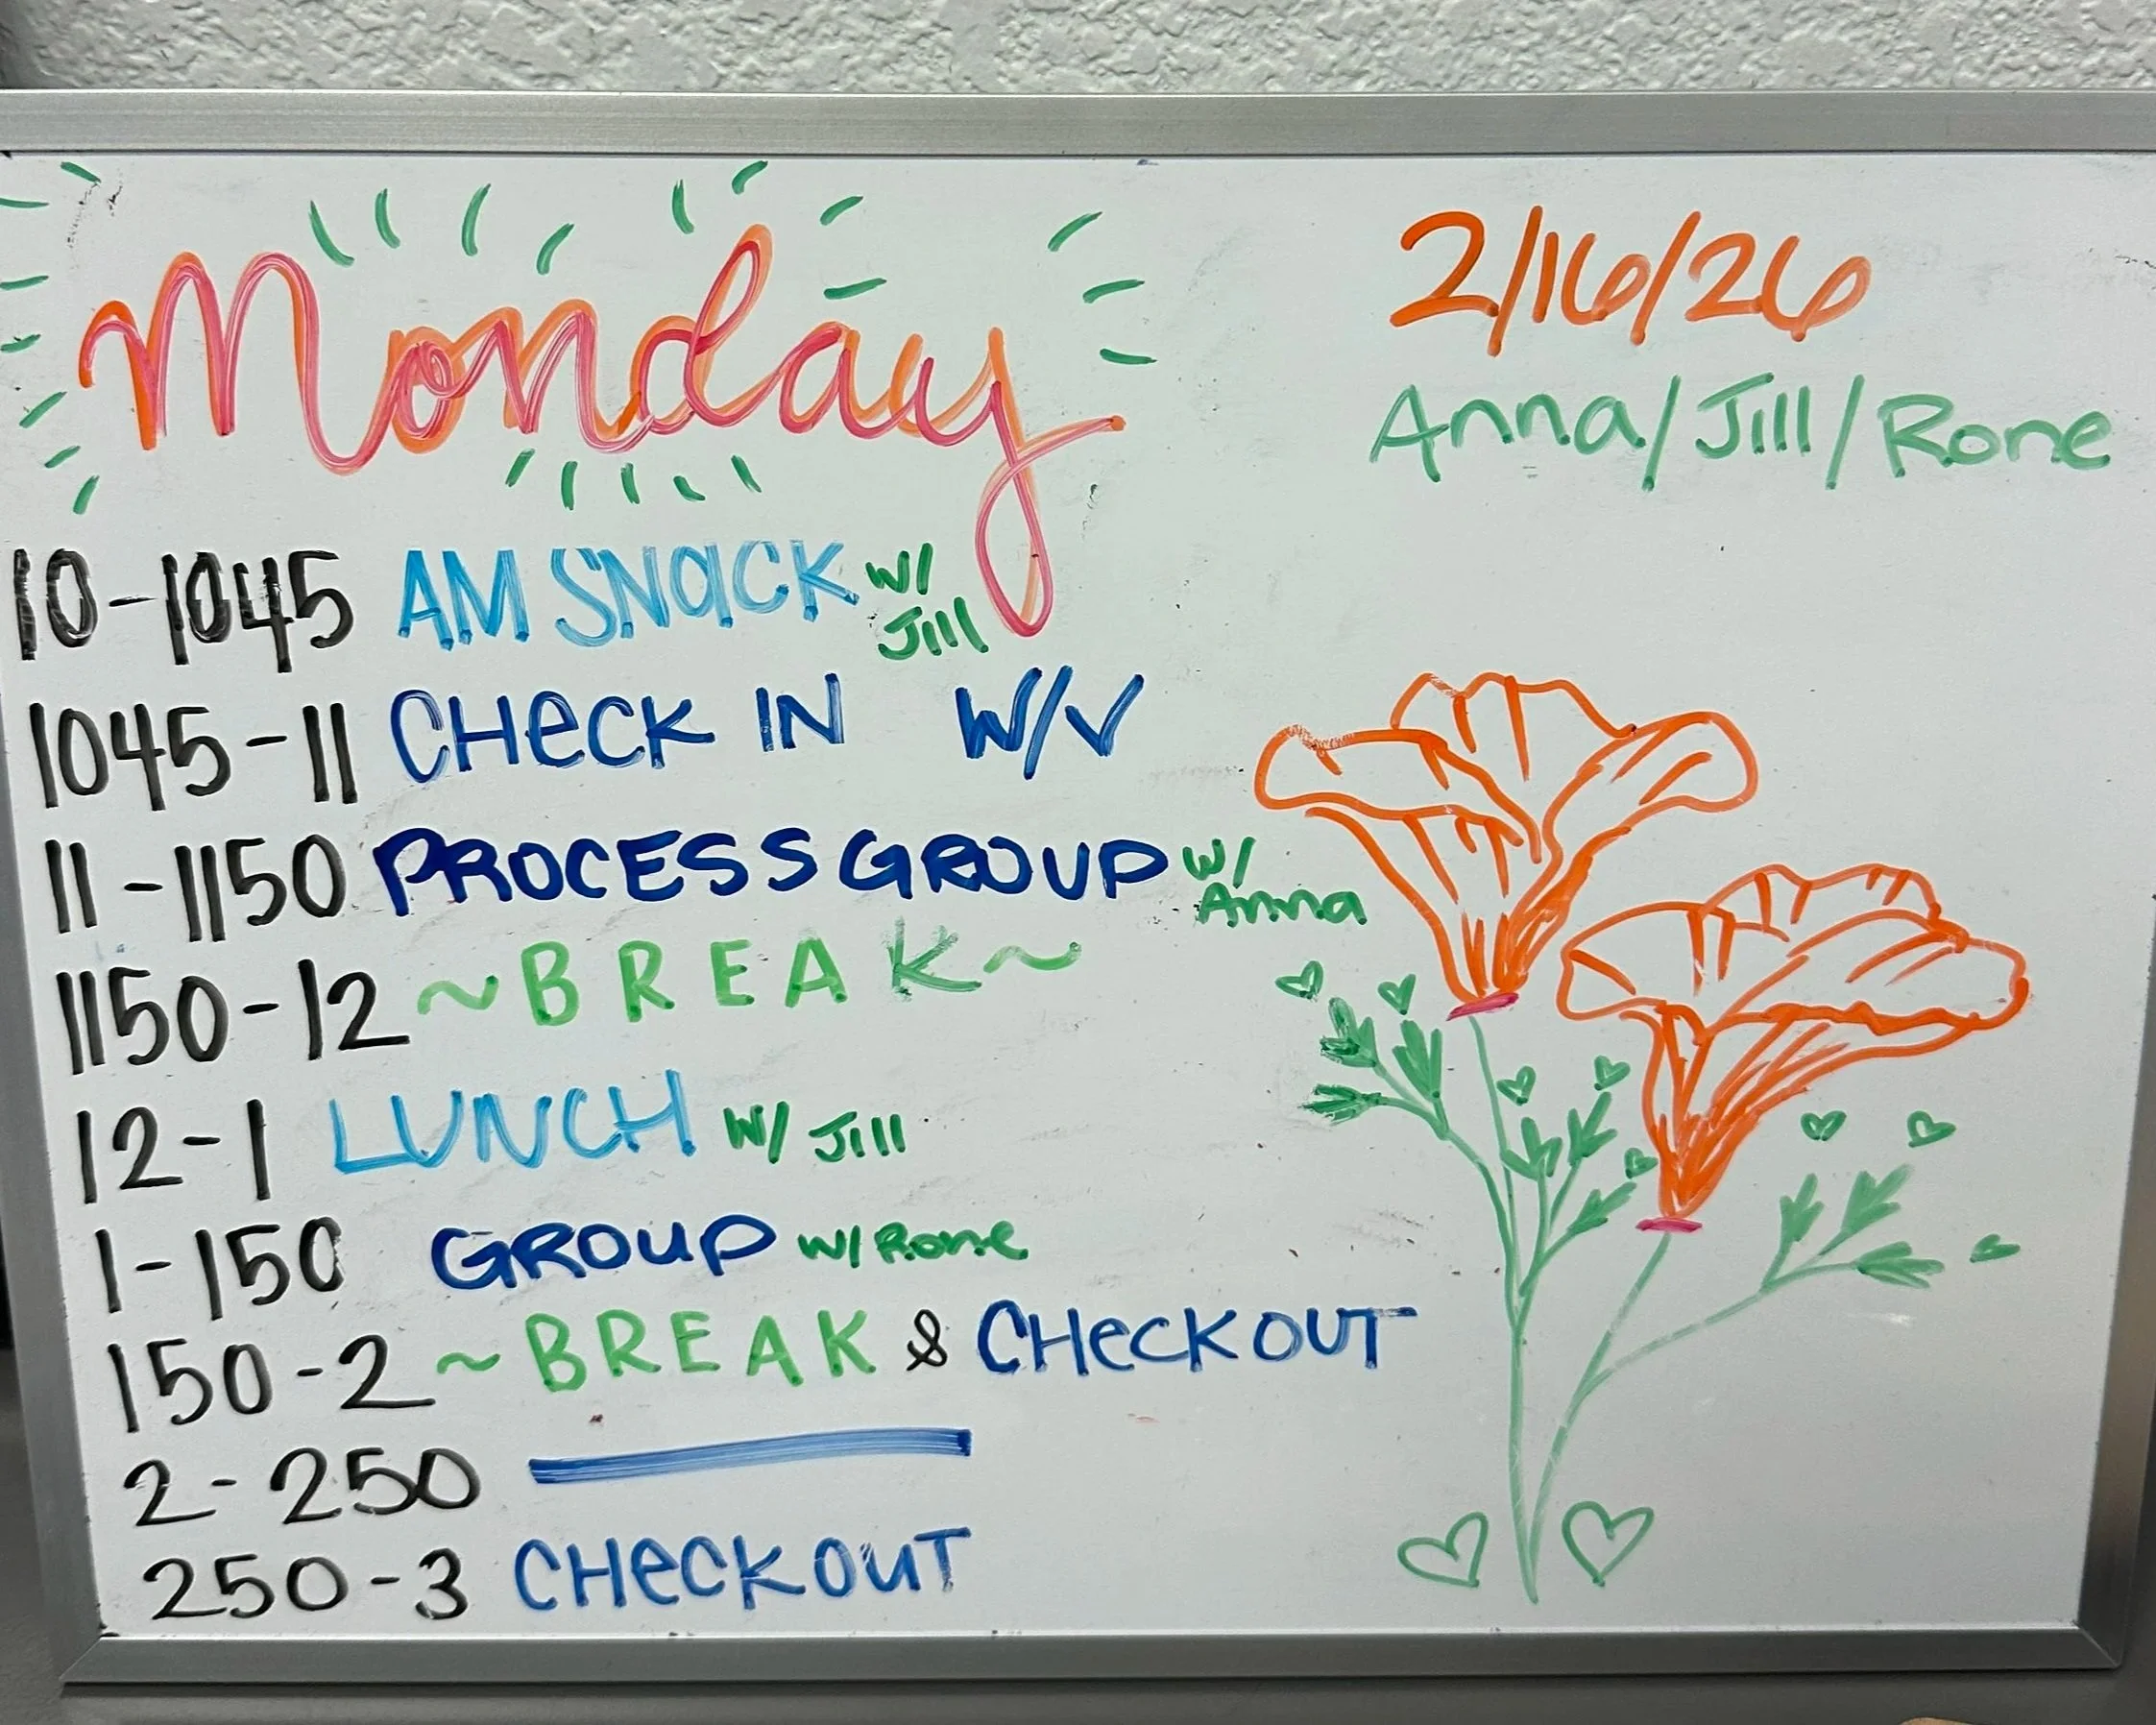 Monday
2/16/26
Anna/Jill/Rone
10-1045 AM SNACK w/ Jill
1045-11 CHECK IN W/V
11-1150 PROCESS GROUP w/ Anna
1150-12 ~BREAK~
12-1 LUNCH w/ Jill
1-150 GROUP w/ Rone
150-2 ~BREAK & CHECKOUT
2-250
250-3 CHECKOUT